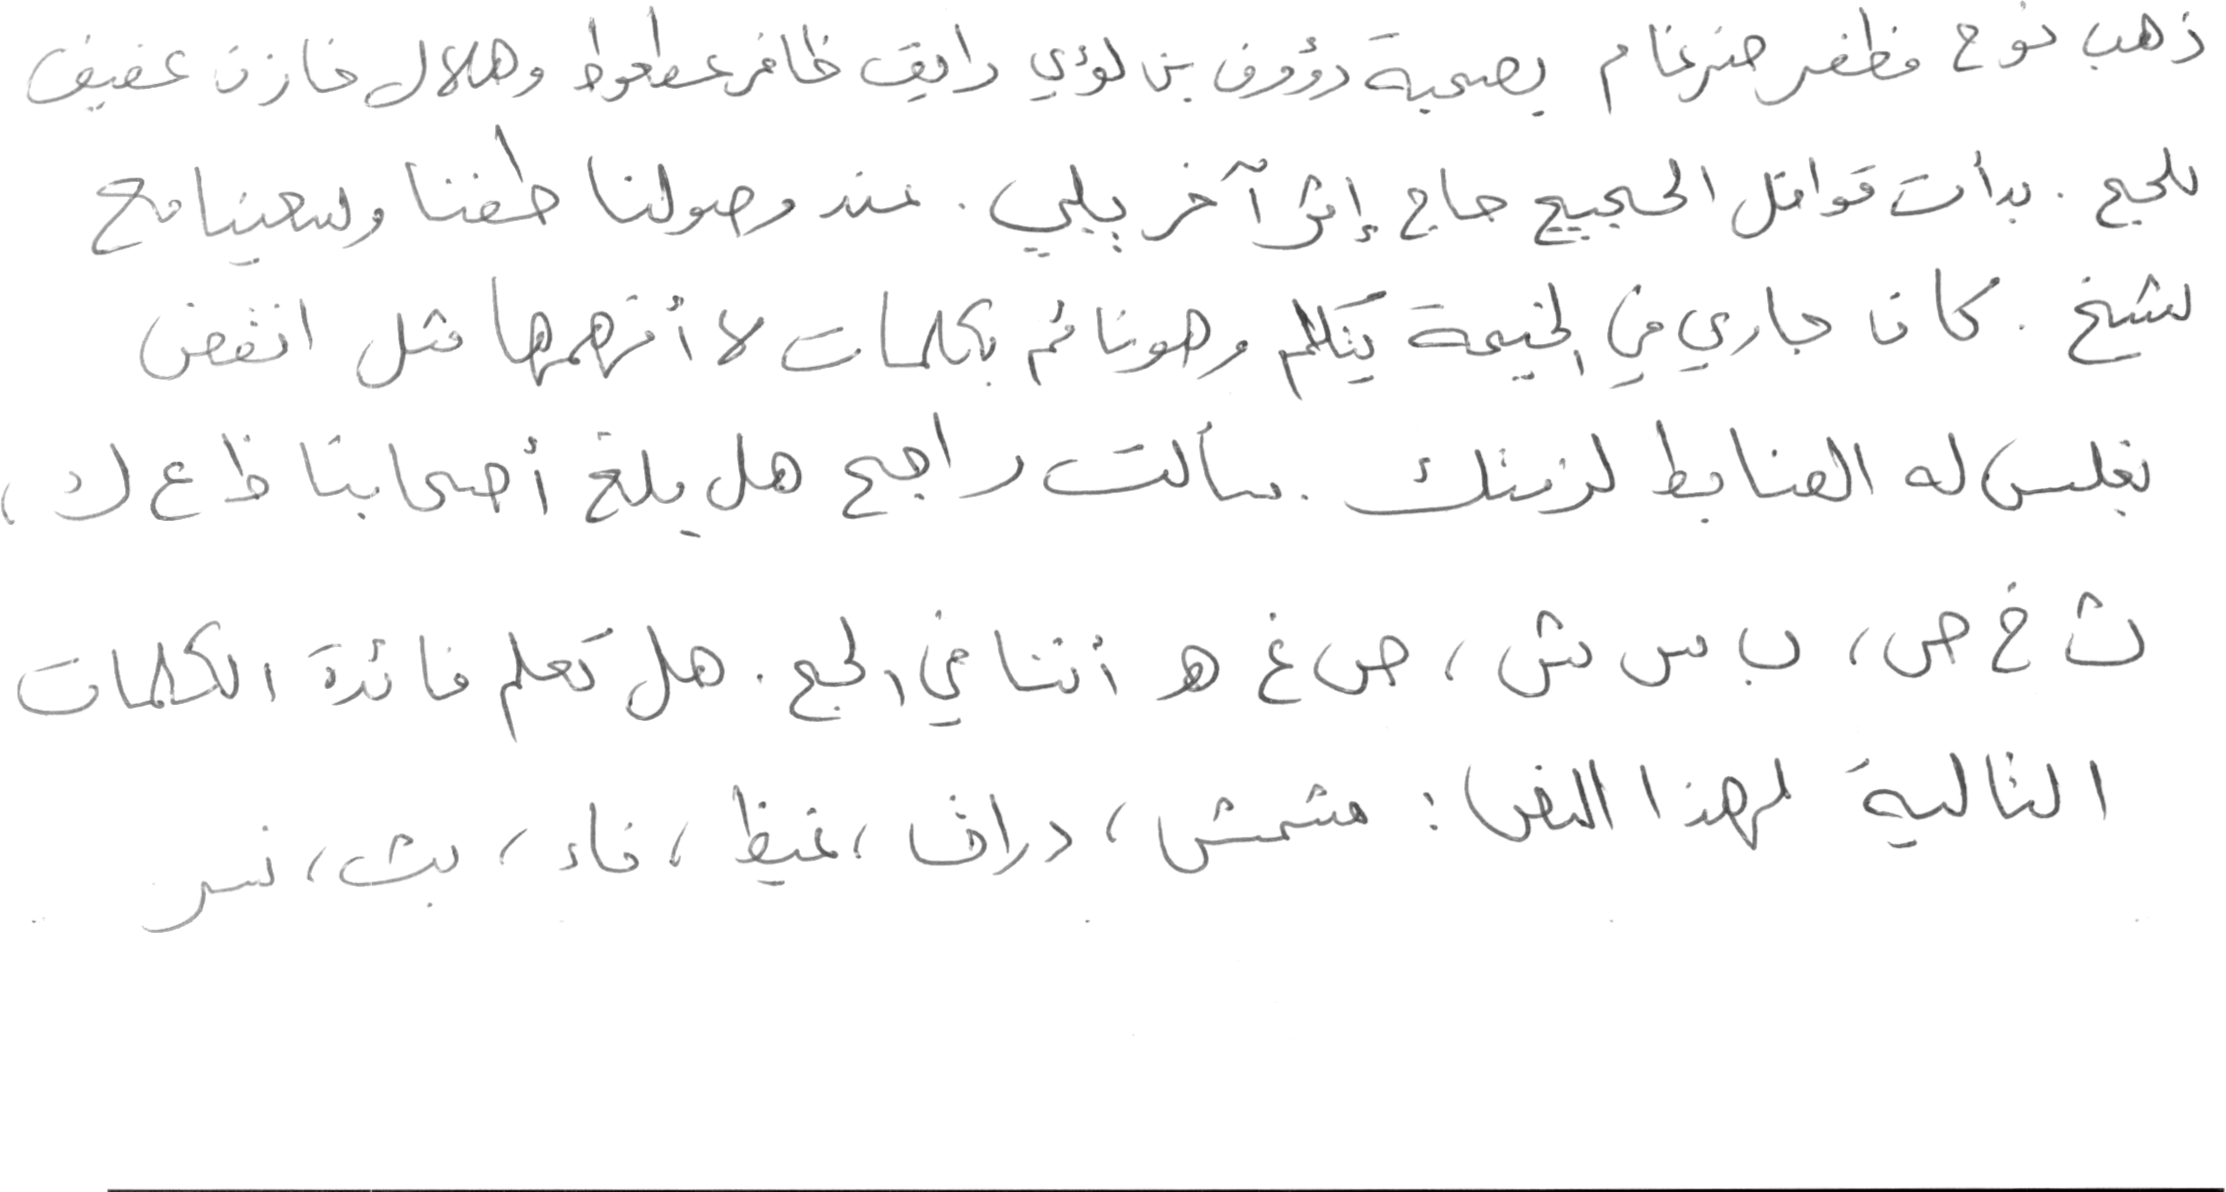 ذهب نوح مظفر ضرغام بصحبة رؤوف بن لؤي رايق ظافر عطعوط وهلال خازن عفيف
للحج . بدأت قوافل الحجيج حاج إثر آخر يلبي . عند وصولنا طفنا وسعينا مع
شيخ . كان جاري في الخيمة يتكلم وهو نائم بكلمات لا أفهمها مثل انقض
نغلس له الضابط لزينتك . سألت راجح هل بلغ أصحابنا ظ ع ك ،
ث خ ص ، ب س ش ، ض غ ه أننا في الحج . هل تعلم فائدة الكلمات
التالية لهذا النص : مشمش ، دراق ، غيظ ، فاء ، بث ، نسر